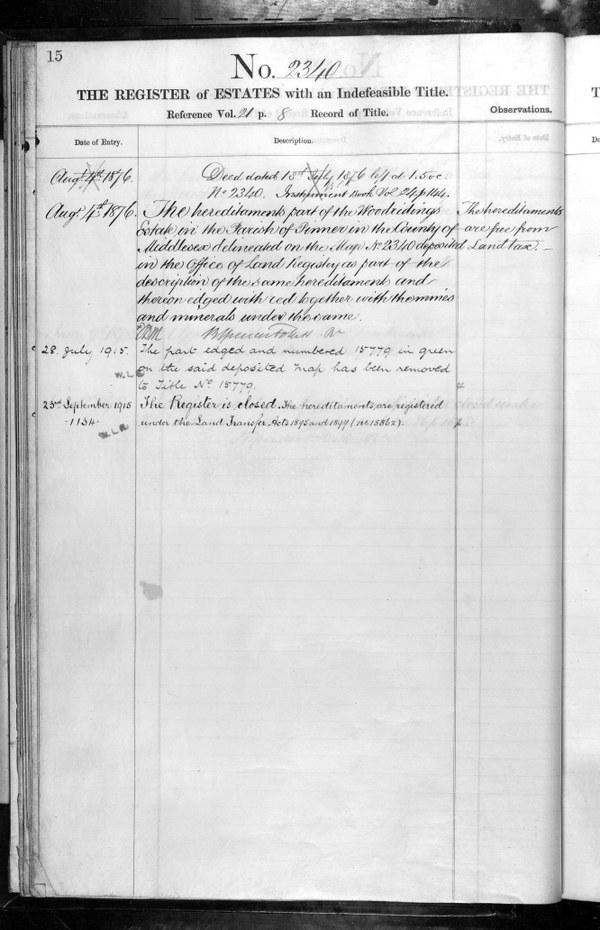 15
No. 2340
THE REGISTER of ESTATES with an Indefeasible Title.
Reference Vol. 21 p. 8 Record of Title.
Observations.
Date of Entry.
Description.
Aug: 4th 1876.
Deed dated 18th July 1876 at 1.50c.
No 2340. Instrument Book Vol 24 p 144.
Aug: 4th 1876.
The hereditaments part of the Woodridings
Estate in the Parish of Pinner in the County of
Middlesex delineated on the Map No 2340 deposited
in the Office of Land Registry as part of the
description of the same hereditaments and
thereon edged with red together with the mines
and minerals under the same.
The hereditaments
are free from
Land tax. —
28. July 1915.
The part edged and numbered 15779 in green
on the said deposited map has been removed
to Title No 15779.
W.L.
23rd September 1915
1134
The Register is closed. The hereditaments are registered
under the Land Transfer Acts 1875 and 1897 (
W.L.R